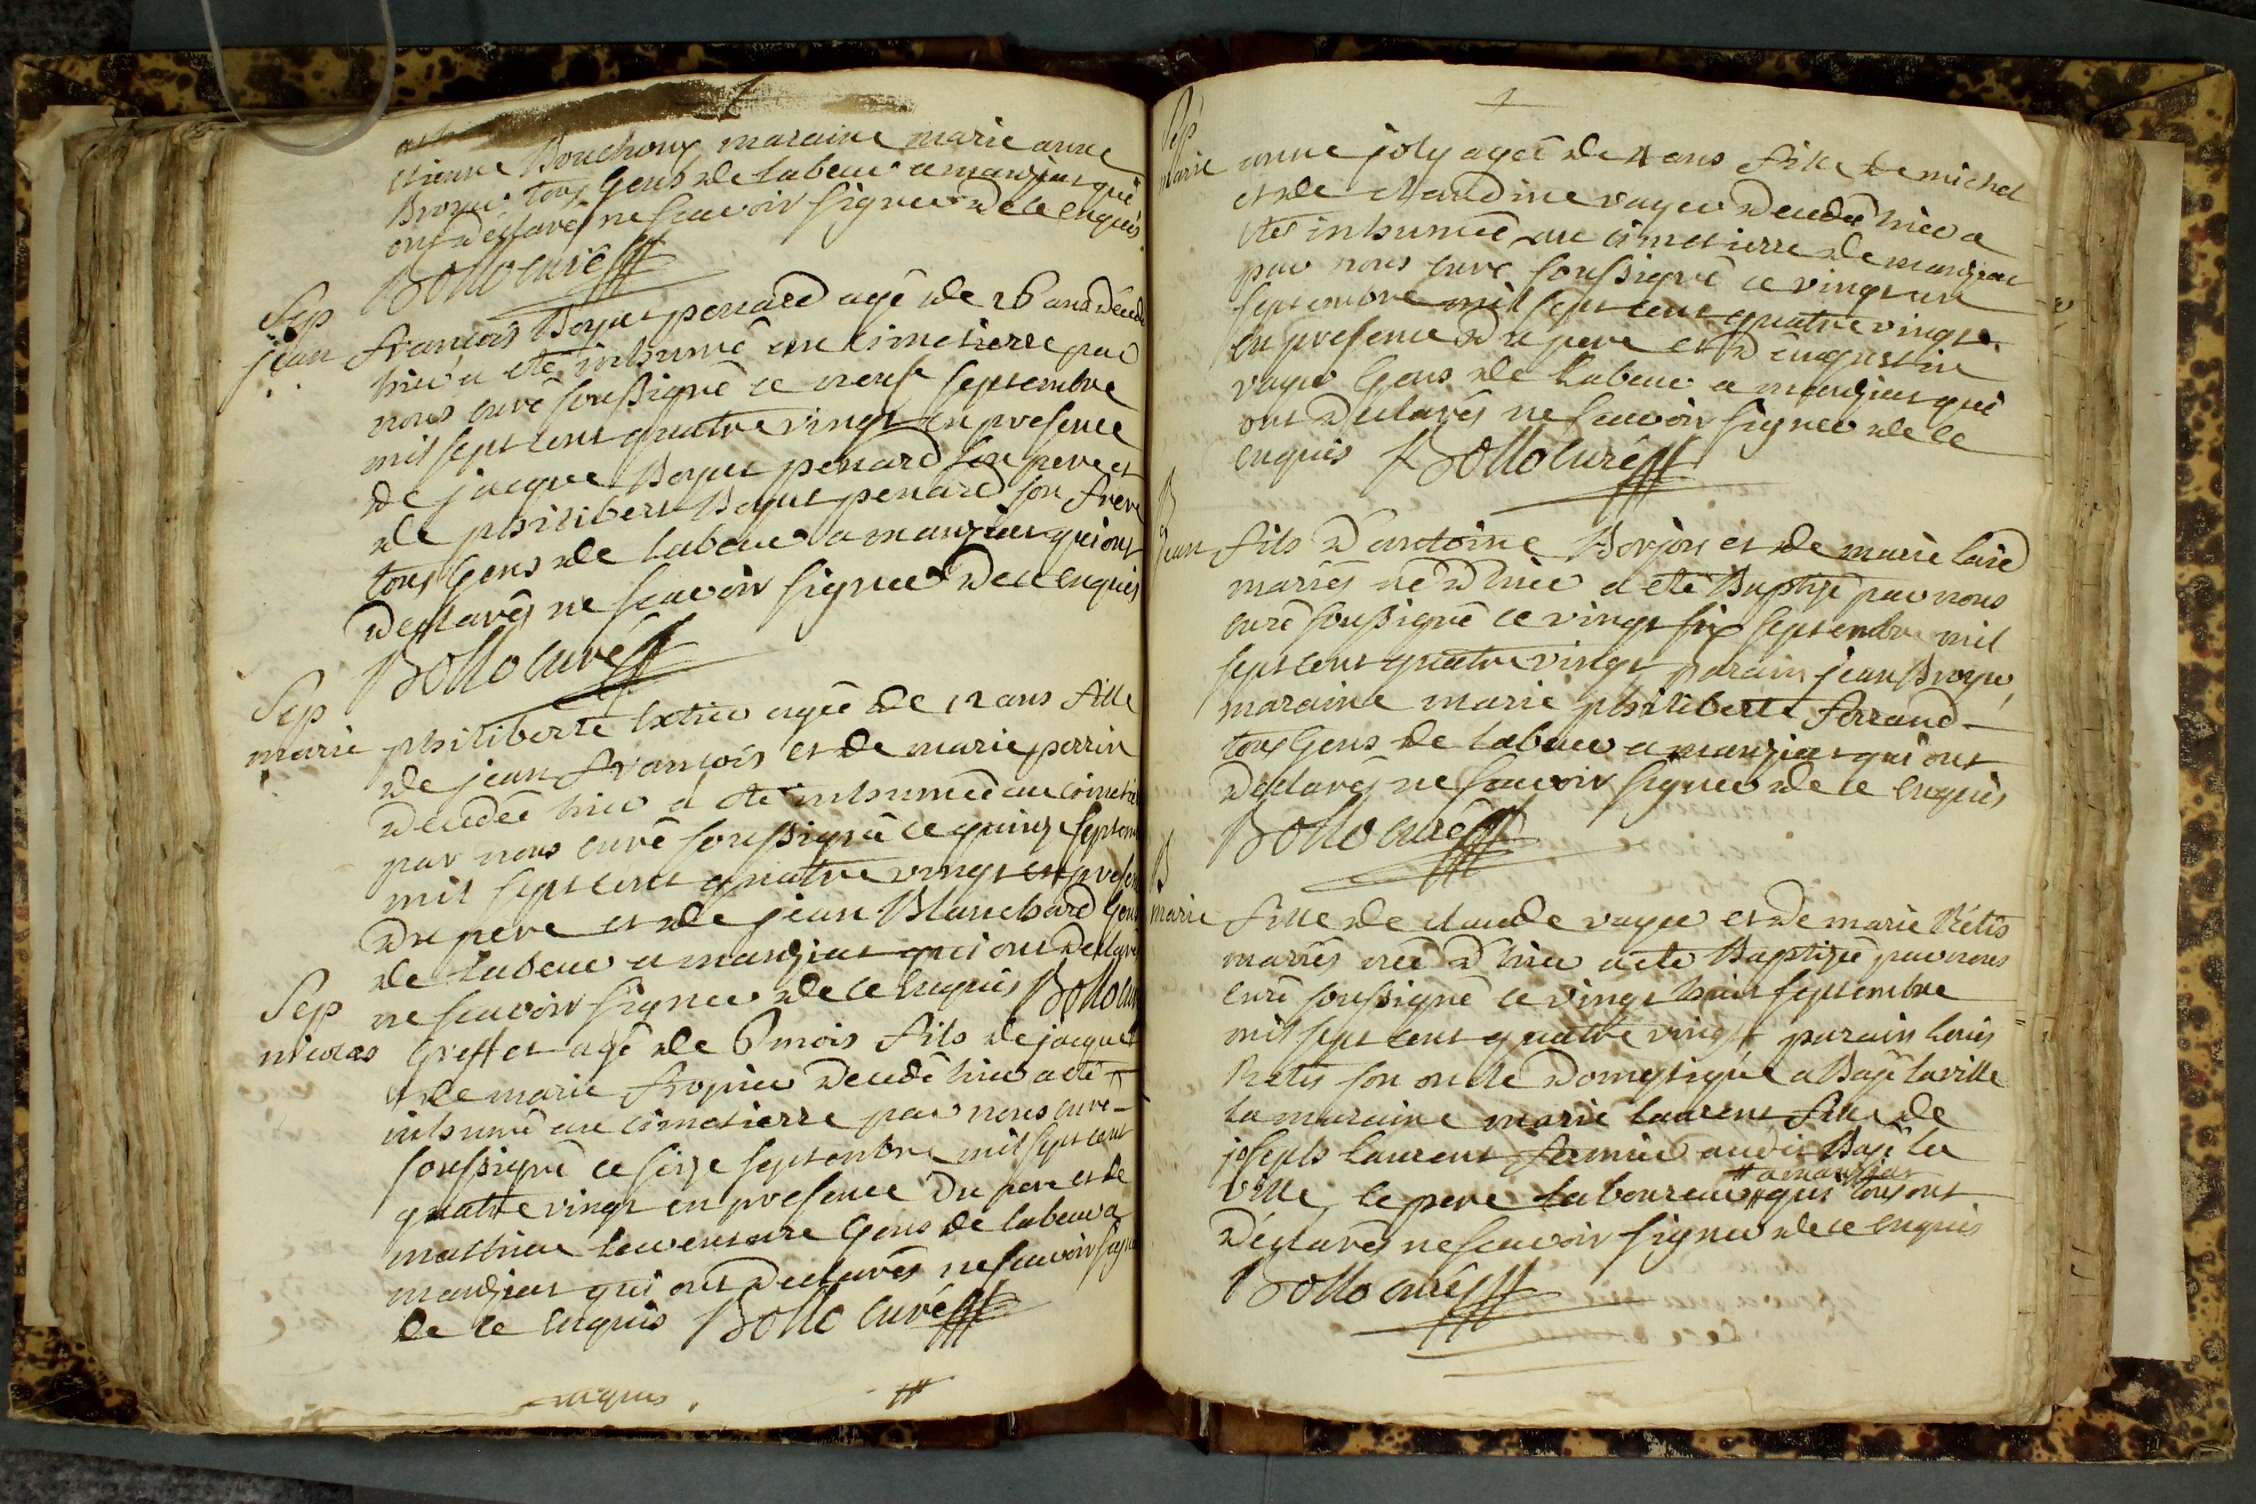 etienne Bouchoux maraine marie anne
Broyer tous Gens de labeur a manziat qui
ont déclarés ne scavoir signer de ce enquis
Bollo curé
Sep
jean françois Boyat penard agé de 26 ans décédé
hier a eté inhumé au cimetierre par
nous curé soussigné ce neuf septembre
mil sept cent quatre vingt en presence
de jacque Boyat penard son pere et
de philibert Boyat penard son frere
tous Gens de labeur a manziat qui ont
declarés ne scavoir signer de ce enquis
Bollo curé
Sep
marie philiberte agée de 12 ans fille
de jean francois et de marie perrin
décédée hier a eté inhumée au cimetier
par nous curé soussigné ce quinze septem
mil sept cent quatre vingt en presen
du pere et de jean Blanchard Gens
de labeur a manziat qui ont declaré
ne scavoir signer de ce enquis Bollo cur
Sep
nicolas Greffet agé de 6 mois fils de jacque
et de marie fropier décédé hier a eté
inhumé au cimetierre par nous curé
soussigné ce seize septembre mil sept cent
quatre vingt en presence du pere et de
mathieu Gens de labeur a
manziat qui ont declarés ne scavoir signe
de ce enquis Bollo curé
enquis
Sep
marie anne joly agée de 4 ans fille de michel
et de claudine vayer décédée hier a
eté inhumée au cimetierre de manziat
par nous curé soussigné ce vingt un
septembre mil sept cent quatre vingt
en presence du pere et d'augustin
vayer Gens de labeur a manziat qui
ont declarés ne scavoir signer de ce
enquis Bollo curé
B
jean fils d'antoine Borjon et de marie laid
mariés né d'hier a eté Baptisé par nous
curé soussigné ce vingt six septembre mil
sept cent quatre vingt parain jean Broyer
maraine marie philiberte ferrand
tous Gens de labeur a manziat qui ont
déclarés ne scavoir signer de ce enquis
Bollo curé
B
marie fille de claude vayer et de marie Rétis
mariés née d'hier a eté Baptizée par nous
curé soussigné ce vingt huit septembre
mil sept cent quatre vingt parain louis
Retis son oncle domestique a Bagé la ville
la maraine marie laurent fille de
joseph laurent fermier audit Bagé la
# a manziat
ville, le pere laboureur # qui tous ont
déclarés ne scavoir signer de ce enquis
Bollo curé